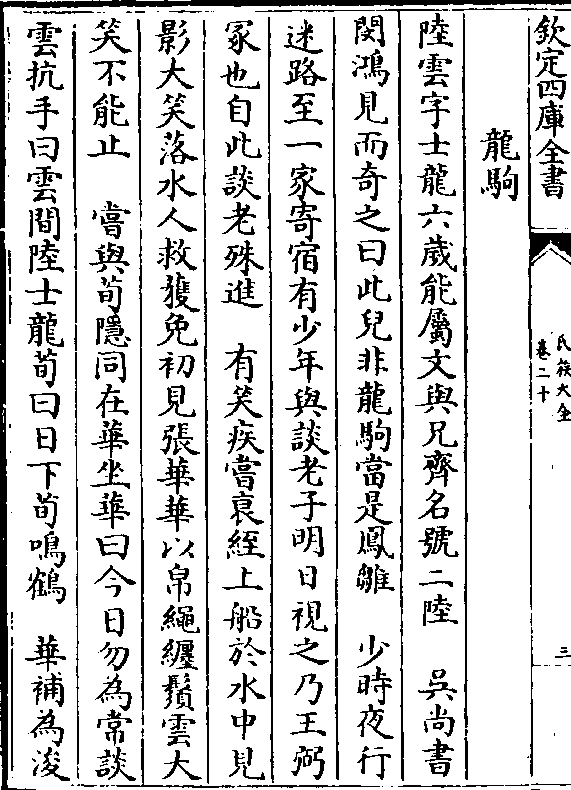 欽定四庫全書
氏族大全
卷二十
三
龍駒
陸雲字士龍六歲能屬文與兄齊名號二陸　吳尚書
閔鴻見而奇之曰此兒非龍駒當是鳳雛　少時夜行
迷路至一家寄宿有少年與談老子明日視之乃王弼
冢也自此談老殊進　有笑疾嘗衰絰上船於水中見
影大笑落水人救獲免初見張華華以帛繩纏鬚雲大
笑不能止　嘗與荀隱同在華坐華曰今日勿為常談
雲抗手曰雲間陸士龍荀曰日下荀鳴鶴　華補為浚